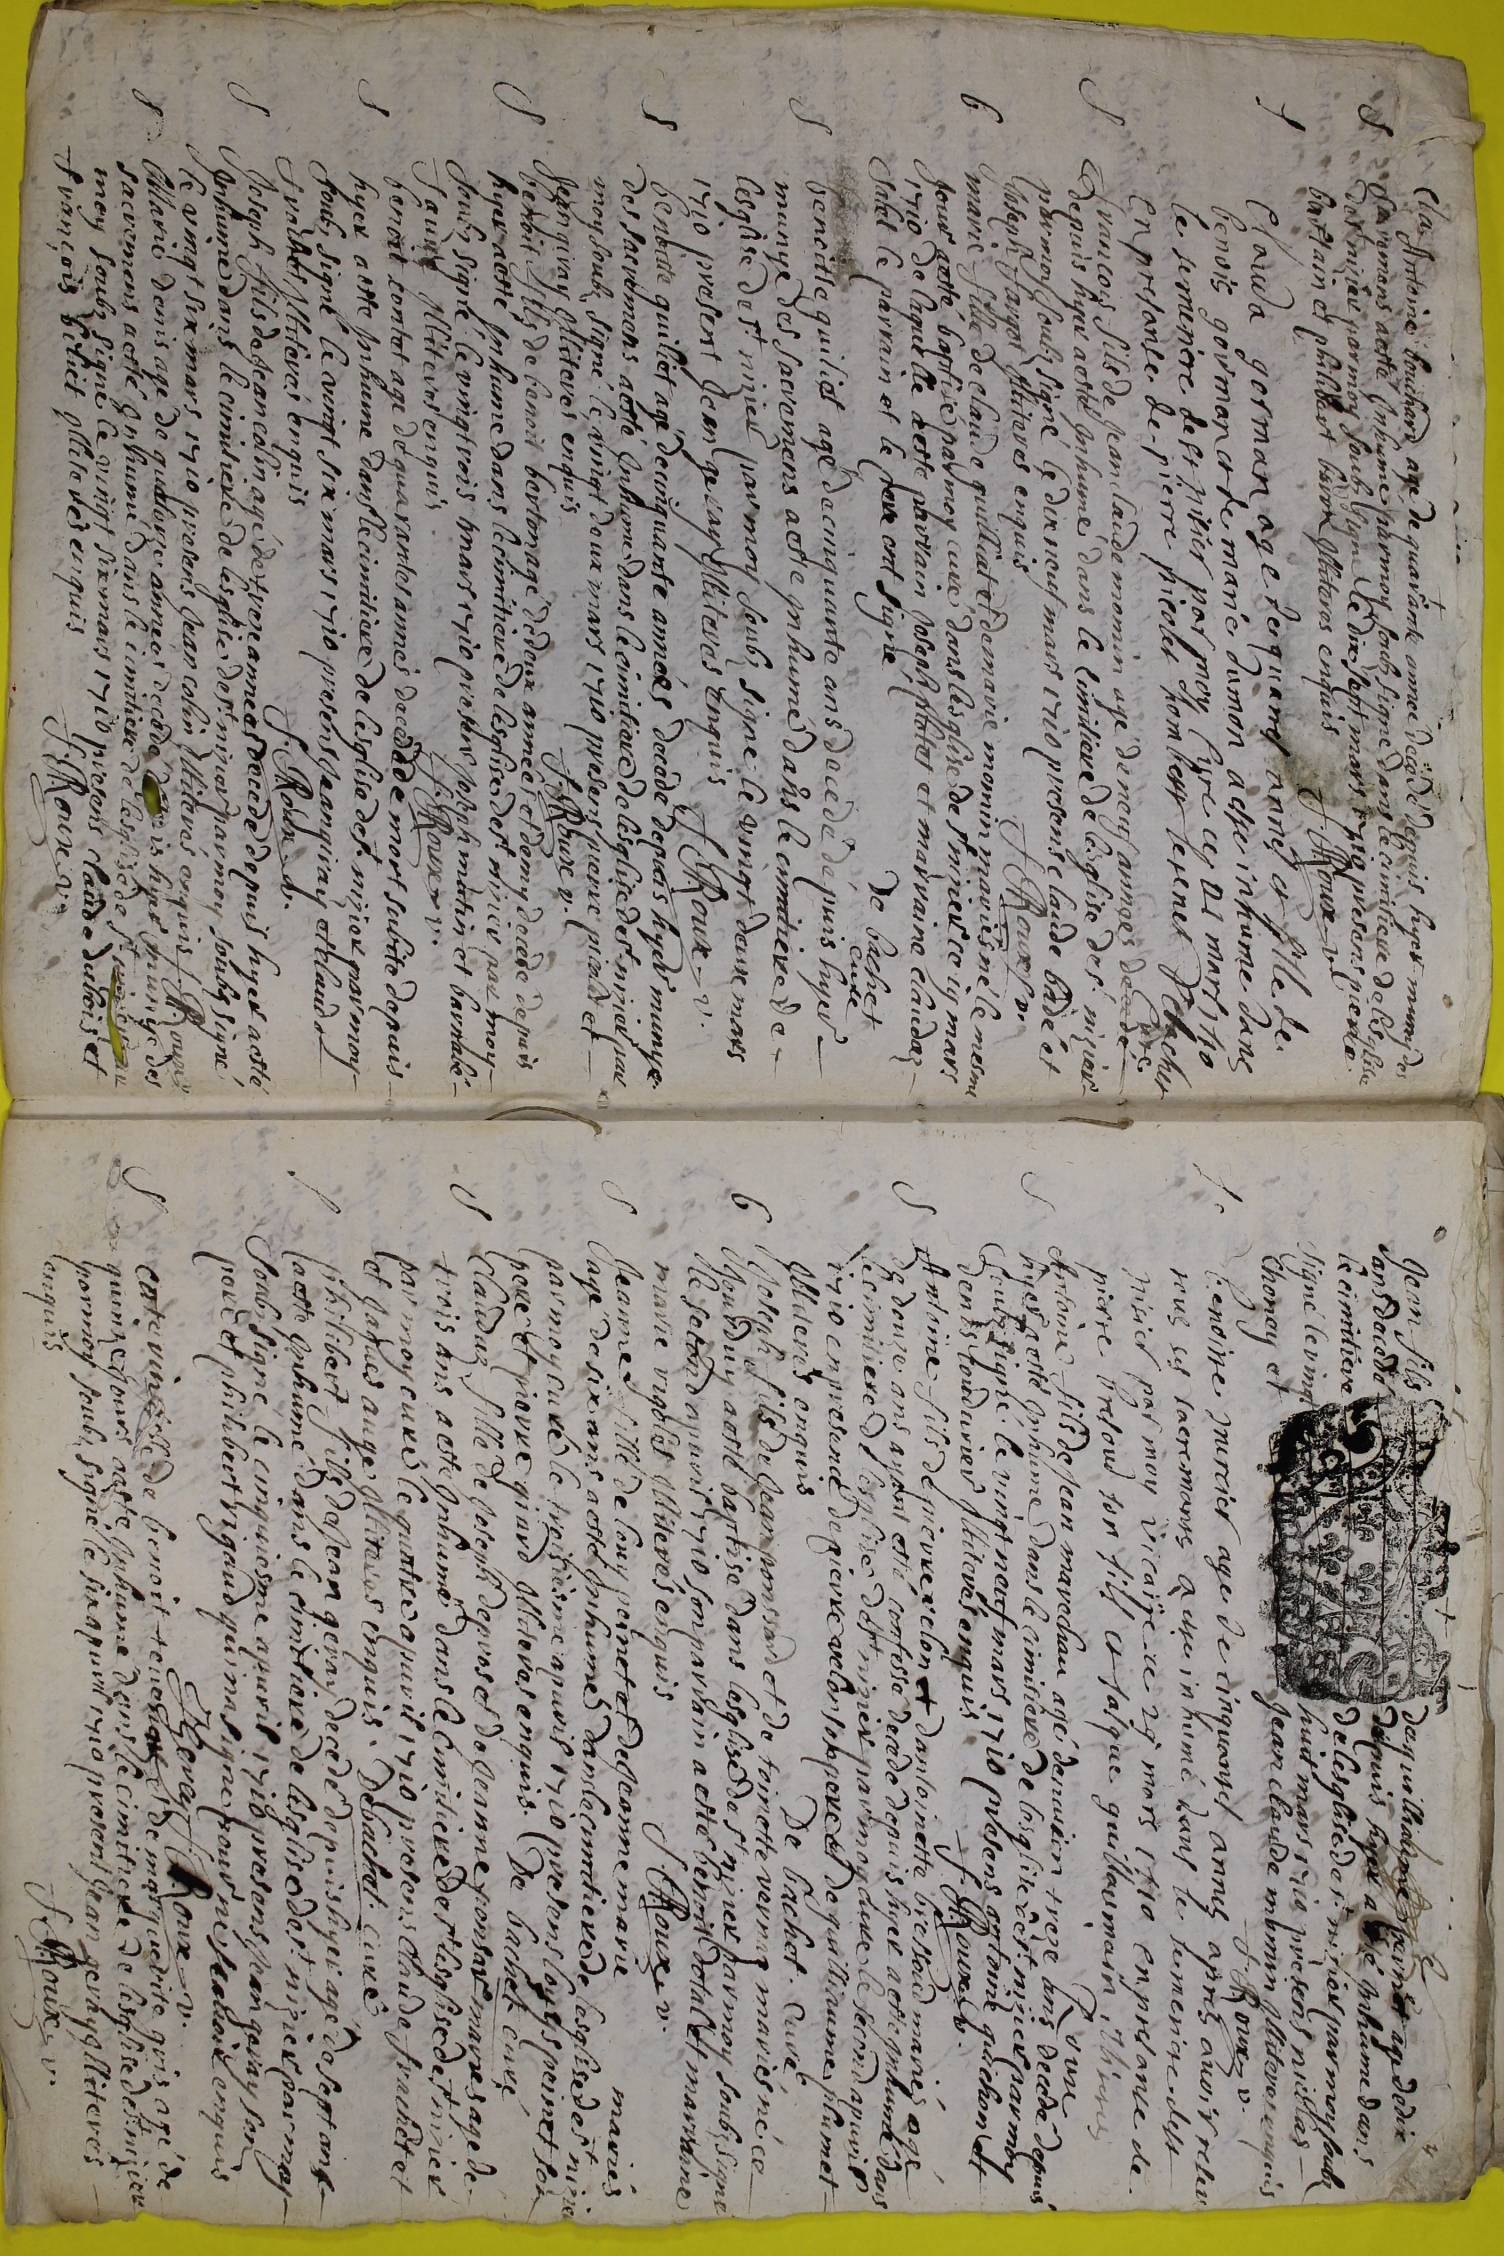 Antoine bouchard age de quarante année decedé depuis hyer muny des
S sacremans a esté Inhumé par moy soub signé dans le cimitiere de lesglise
de st nizier par moy soub signé le dix sept mars 1710 presens pierre
bastiain et philibert buiron illiteres enquis J Roux v.
S Clauda german age de quarante années et fille de
benois gourmand et de marie dumon a esté inhume dans
le semetiere de st nisier par moy Cure ce 18 mars 1710
en presance de pierre picolet honbert tevenet Debachet
Curé
S Francois fils de Jean laude momin age de neuf années decedé
depuis hyer a esté Inhumé dans le cimitiere de lesglise de st nizier
par moy soub signé le dix neuf mars 1710 presens claude badé et
Joseph fargot illiteres enquis J Roux v.
b marie fille de claude guilliat et de marie momin mariés né le mesme
Jour a esté baptisé par moy curé dans lesglise de st nizier ce 19 mars
1710 de laquelle a esté parrain Joseph et marraine claudaz
le parrain et le pere ont signé De bachet
curé
S benoite guiliot agé de cinquante ans decedé depuis hyer
munye des sacremens a esté inhumé dans le cimitiere de
lesglise de st nizier par moy soub signe le vingt deux mars
1710 present Jean gevay illiteres enquis J Roux v.
S benoite guiliot agé de cinquante années decedé depuis hyer munye
des sacremens a esté Inhumé dans le cimitiere de lesglise de st nizier par
moy soub signé le vingt deux mars 1710 presens pierre picolet et
Jean givay illiteres enquis J Roux v.
S benoit fils de benoit berton agé de deux années et demy decedé depuis
hyer a esté Inhumé dans le cimitiere de lesglise de st nizier par moy
soub signé le vingt trois mars 1710 presens Joseph matin et barthelé
illiteres enquis J Roux v.
S benoit contat age de quarante années decedé de mort subite depuis
hyer a esté Inhumé dans le cimitiere de lesglise de st nizier par moy
soub signé le vingt six mars 1710 presens Jean givay et claude
frachet illiteres enquis J Roux v.
S Joseph fils de Jean colin agé de treze années decedé depuis hyer a esté
Inhumé dans le cimitiere de lesglise de st nizier par moy soub signé
le vingt six mars 1710 presens Jean colin illiteres enquis J Roux
S Marie denis age de quatorze années decedé depuis hyer munye des
sacremens a esté Inhumé dans le cimitiere de lesglise de st nizier par
moy soub signé le vingt six mars 1710 presens claude dubois et
francois billiet illiteres enquis J Roux v.
Jean fils de guilliaume perret age de dix
ans decedé depuis hyer a esté Inhumé dans
le cimitiere de lesglise de st nizier par moy soub
signé le vingt huit mars 1710 presens nicolas
Chonay et Jean claude momin illiteres enquis
J Roux v.
S benoite mercier age de cinquante années apres avoir reseu
tous ses sacremans a esté inhumé dans le semetiere de st
nisier par moy vicaire ce 29 mars 1710 en presance de
pierre breloud son fils et jasque guillaumain, thines
J Roux
S Antoine fils de Jean marechau agé denviron treze ans decedé depuis
hyer a esté Inhumé dans le cimitiere de lesglise de st nizier par moy
soub signé le vingt neuf mars 1710 presens antoine guichon et
denis tondurier illiteres enquis J Roux v.
S Antoine fils de pierre velon et dantoinette breloud mariés agé
de douze ans ayant esté confessé decedé depuis hyer a esté Inhumé dans
le cimitiere de lesglise de st nizier par moy curé le second apvril
1710 en presence de pierre velon son pere et de guilliaume plumet
illiteres enquis De bachet. curé
b Joseph fils de Jean ponsard et de toinette verne mariés né ce
Jourduy a esté baptisé dans lesglise de st nizier par moy soub signé
le second apvril 1710 son parrain a esté benoit dotal et marraine
marie vugolat illiteres enquis J Roux v.
S Jeanne fille de louys peinet et de Jeanne marie mariés
agé de six ans a esté Inhumé dans le cimitiere de lesglise de st nizier
par moy curé le troisiesme apvril 1710 presens louys peinet son
pere et pierre giard illiteres enquis. De bachet curé
S Claudaz fille de Joseph depuos et de Jeanne ponsard mariés agé de
trois ans a esté Inhumé dans le cimitiere de lesglise de st nizier
par moy curé le quatre apvril 1710 presens claude frachet et
et Jaques auge illiteres enquis. Debachet. curé
S philibert fils de Jean gevay decedé depuis hyer agé de sept ans
a esté Inhumé dans le cimitiere de lesglise de st nizier par moy
soub signe le cinquiesme apvril 1710 presens Jean gevay son
pere et philibert rigaud qui na signe pour ne scavoir enquis
J Gevay J Roux v.
S Catherine fille de benoit tevenet et de marguerite guis agé de
quinze Jours a esté Inhumé dans le cimitiere de lesglise de st nizier
par moy soub signé le six apvril 1710 present Jean gevay illiteres
enquis J Roux v.